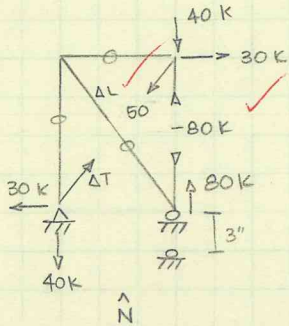 40 K
30 K
ΔL
50
-80 K
30 K
ΔT
80 K
3"
40 K
N̂